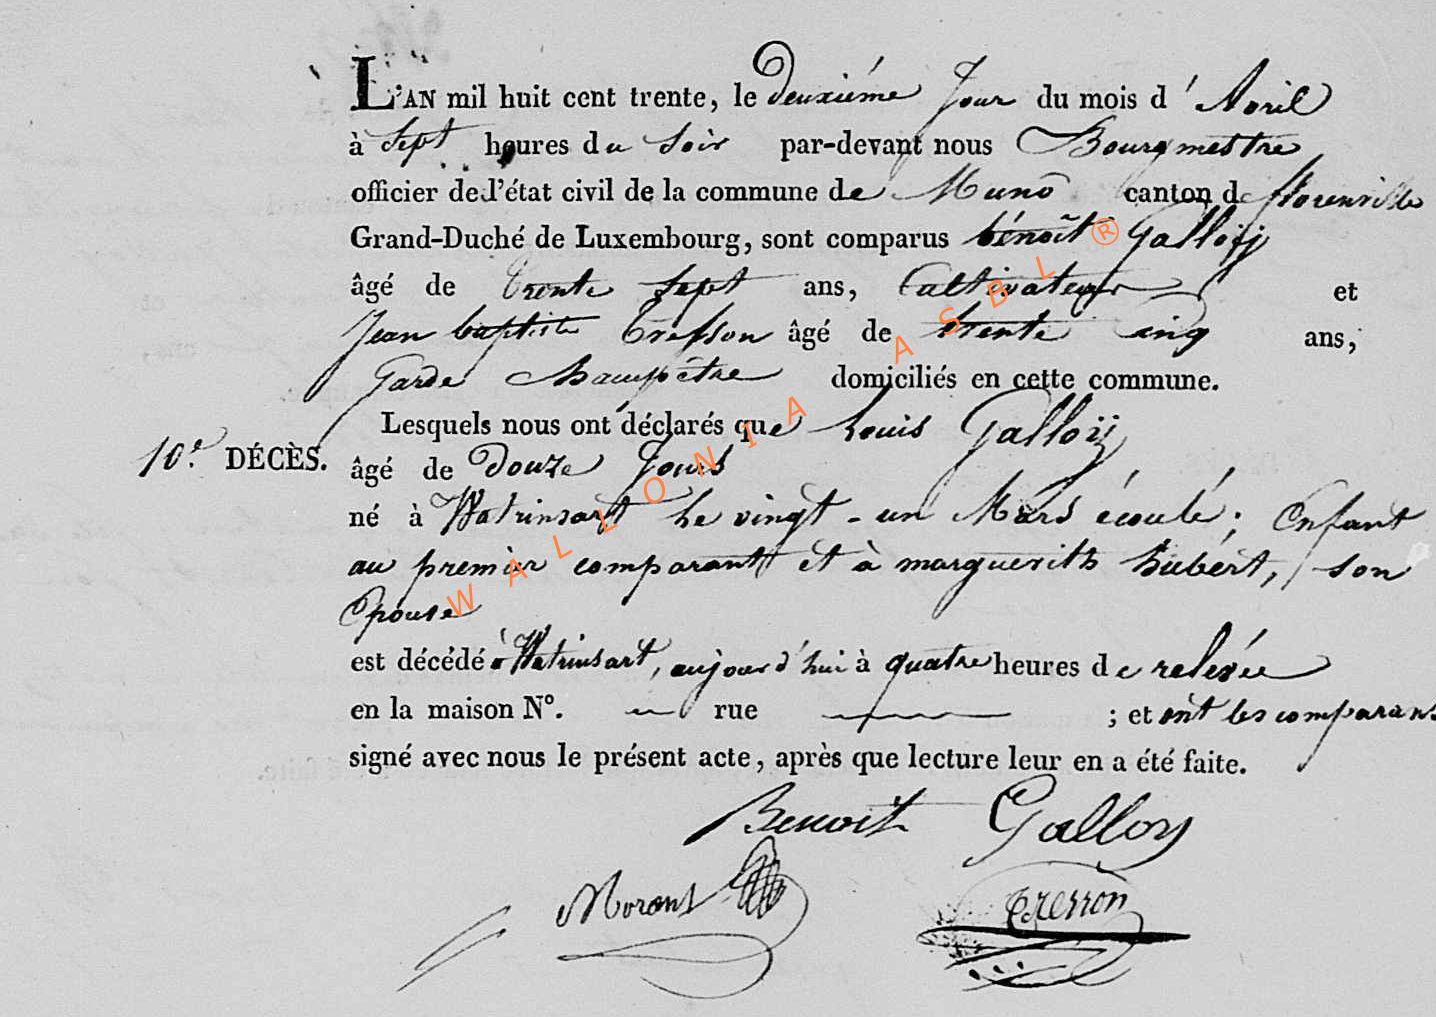 L'AN mil huit cent trente, le deuxiéme Jour du mois d'Avril
à Sept heures du Soir par-devant nous Bourgmestre
officier de l'état civil de la commune de Muno canton de florenville
Grand-Duché de Luxembourg, sont comparus bénoît Galloij
âgé de trente Sept ans, Cultivateur et
Jean baptiste tresson âgé de trente cinq ans,
Garde Champêtre domiciliés en cette commune.
Lesquels nous ont déclarés que Louis Galloij
10.e DÉCÈS. âgé de Douze Jours
né à Watrinsart Le vingt-un Mars écoulé; Enfant
au premier comparant et à marguerith hubért, son
Epouse
est décédé à Watrinsart, aujourd'hui à quatre heures de relevée
en la maison N°. — rue — ; et ont les comparans
signé avec nous le présent acte, après que lecture leur en a été faite.
Benoit Galloy
Tresson
WALLONIA ASBL ®